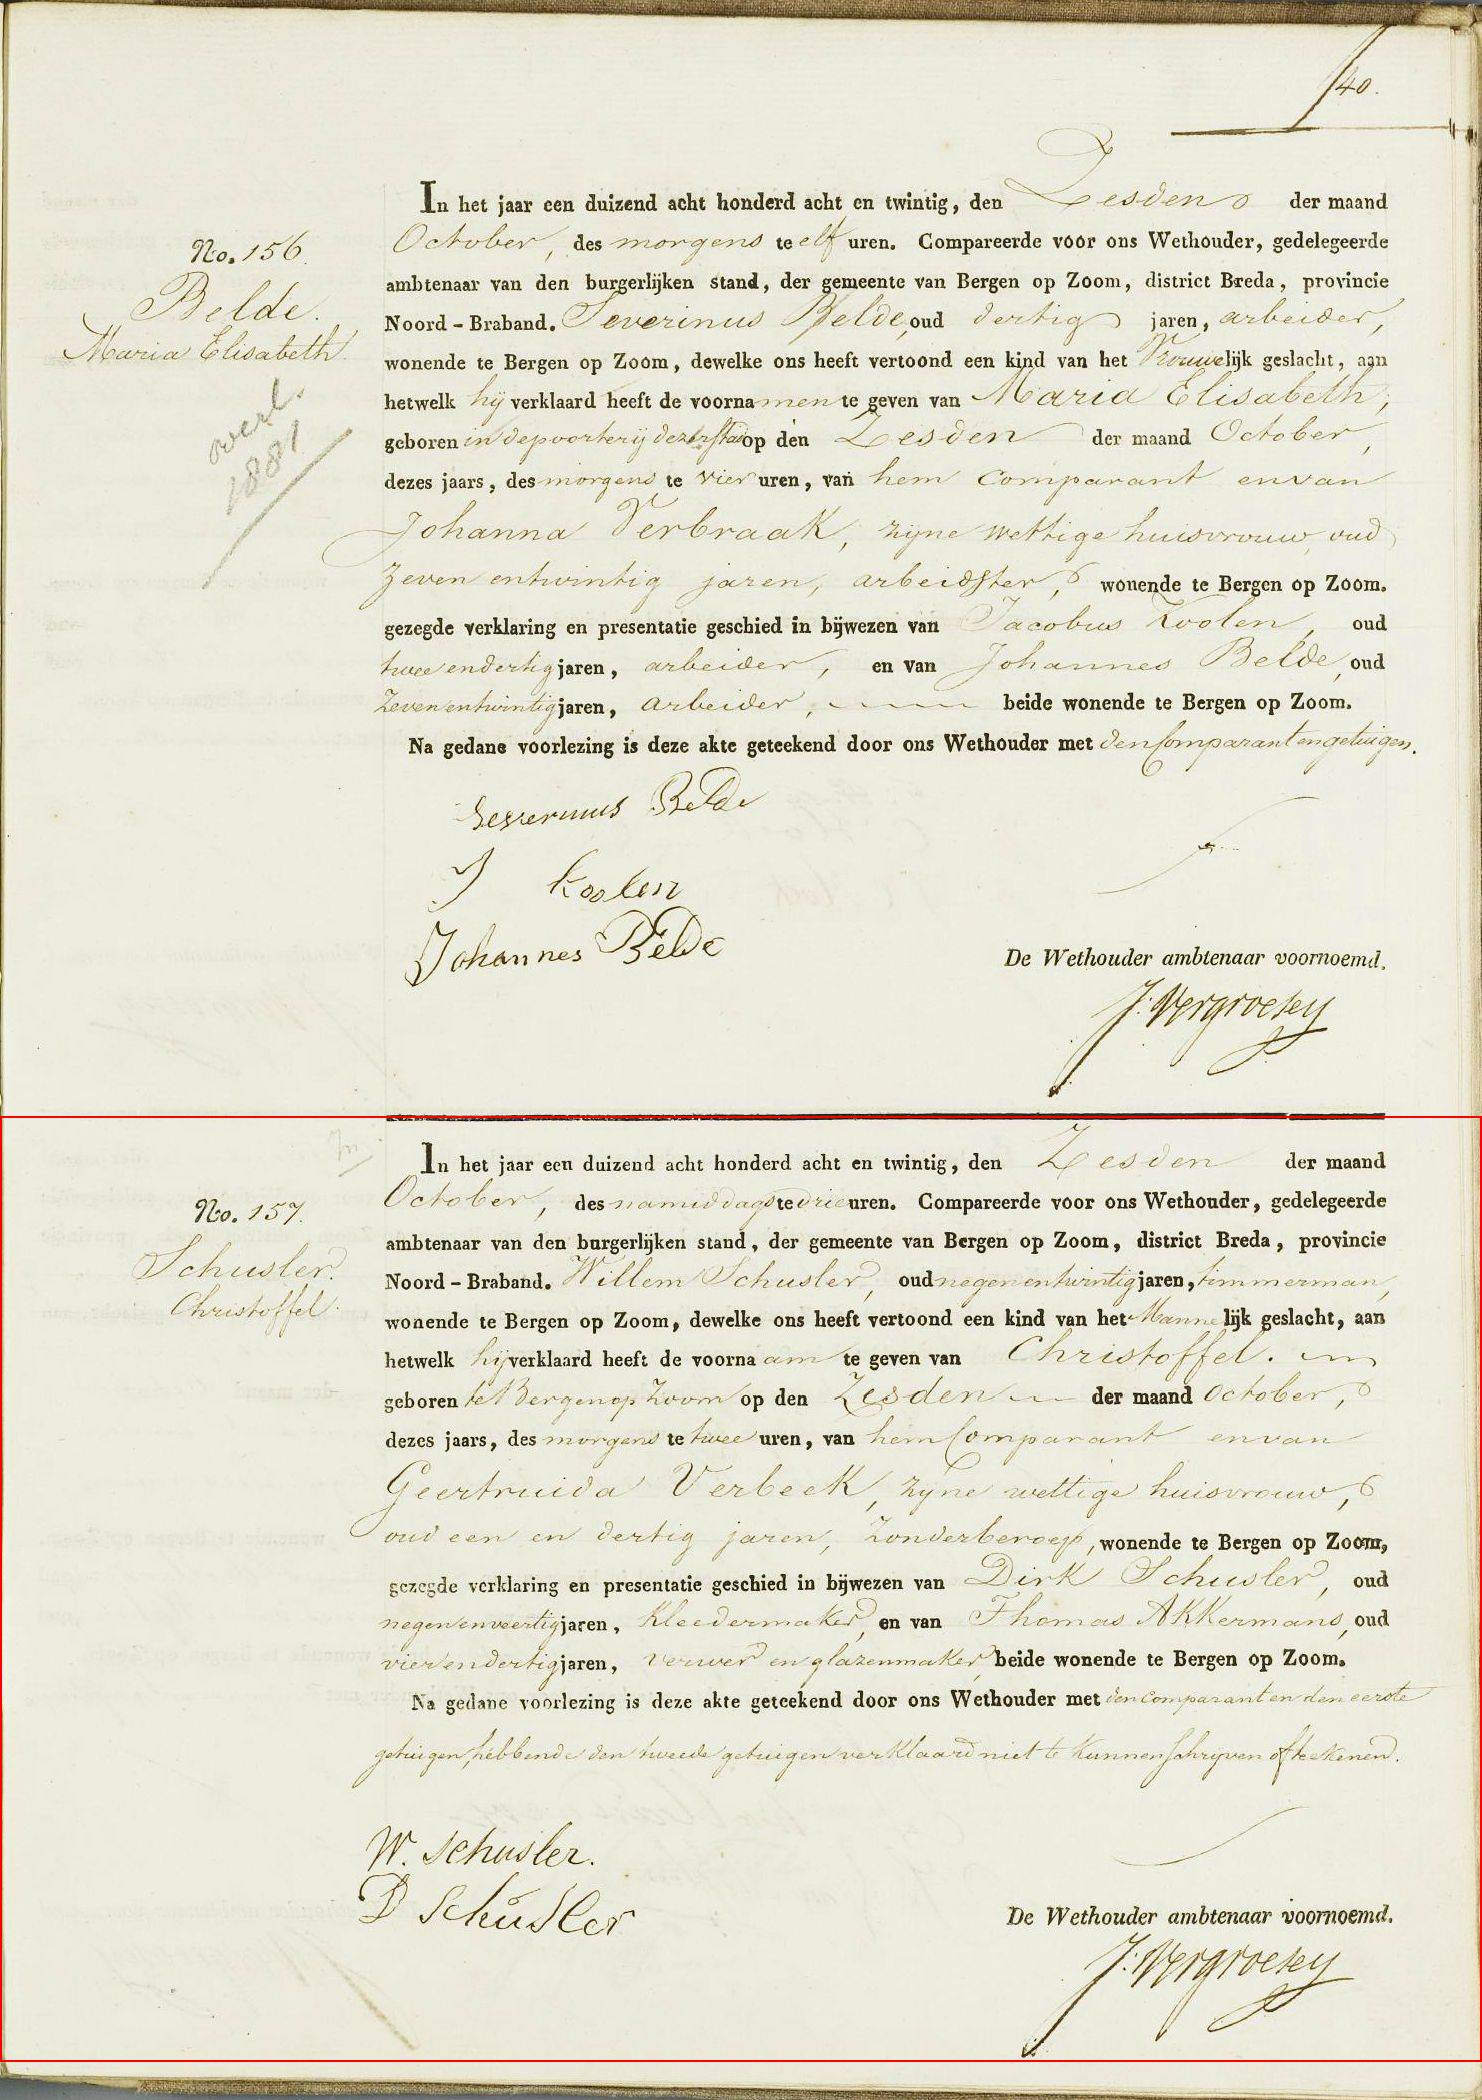 40.
No. 156.
Belde.
Maria Elisabeth
overl.
1881
In het jaar een duizend acht honderd acht en twintig, den Zesden der maand
October, des morgens te elf uren. Compareerde voor ons Wethouder, gedelegeerde
ambtenaar van den burgerlijken stand, der gemeente van Bergen op Zoom, district Breda, provincie
Noord-Braband. Severinus Belde, oud dertig jaren, arbeider,
wonende te Bergen op Zoom, dewelke ons heeft vertoond een kind van het Vrouwelijk geslacht, aan
hetwelk hij verklaard heeft de voornamen te geven van Maria Elisabeth,
geboren in de poorterij dezer stad op den Zesden der maand October,
dezes jaars, des morgens te vier uren, van hem Comparant en van
Johanna Verbraak, zijne wettige huisvrouw, oud
zeven en twintig jaren, arbeidster, wonende te Bergen op Zoom.
gezegde verklaring en presentatie geschied in bijwezen van Jacobus Koolen, oud
twee en dertig jaren, arbeider, en van Johannes Belde, oud
zeven en twintig jaren, arbeider, beide wonende te Bergen op Zoom.
Na gedane voorlezing is deze akte geteekend door ons Wethouder met den Comparant en getuigen.
Severinus Belde
J Koolen
Johannes Belde
De Wethouder ambtenaar voornoemd.
J. Vergroesen
No. 157.
Schusler.
Christoffel.
In het jaar een duizend acht honderd acht en twintig, den Zesden der maand
October, des namiddags te drie uren. Compareerde voor ons Wethouder, gedelegeerde
ambtenaar van den burgerlijken stand, der gemeente van Bergen op Zoom, district Breda, provincie
Noord-Braband. Willem Schusler, oud negen en twintig jaren, timmerman,
wonende te Bergen op Zoom, dewelke ons heeft vertoond een kind van het Mannelijk geslacht, aan
hetwelk hij verklaard heeft de voornaam te geven van Christoffel.
geboren te Bergen op Zoom op den Zesden der maand October,
dezes jaars, des morgens te twee uren, van hem Comparant en van
Geertruida Verbeek, zijne wettige huisvrouw,
oud een en dertig jaren, zonder beroep, wonende te Bergen op Zoom,
gezegde verklaring en presentatie geschied in bijwezen van Dirk Schusler, oud
negen en veertig jaren, Kleedermaker, en van Thomas Akkermans, oud
vier en dertig jaren, verwer en glazenmaker, beide wonende te Bergen op Zoom.
Na gedane voorlezing is deze akte geteekend door ons Wethouder met den comparant en den eerste
getuigen, hebbende den tweede getuigen verklaard niet te kunnen schrijven of teekenen.
W. Schusler.
D Schusler
De Wethouder ambtenaar voornoemd.
J. Vergroesen